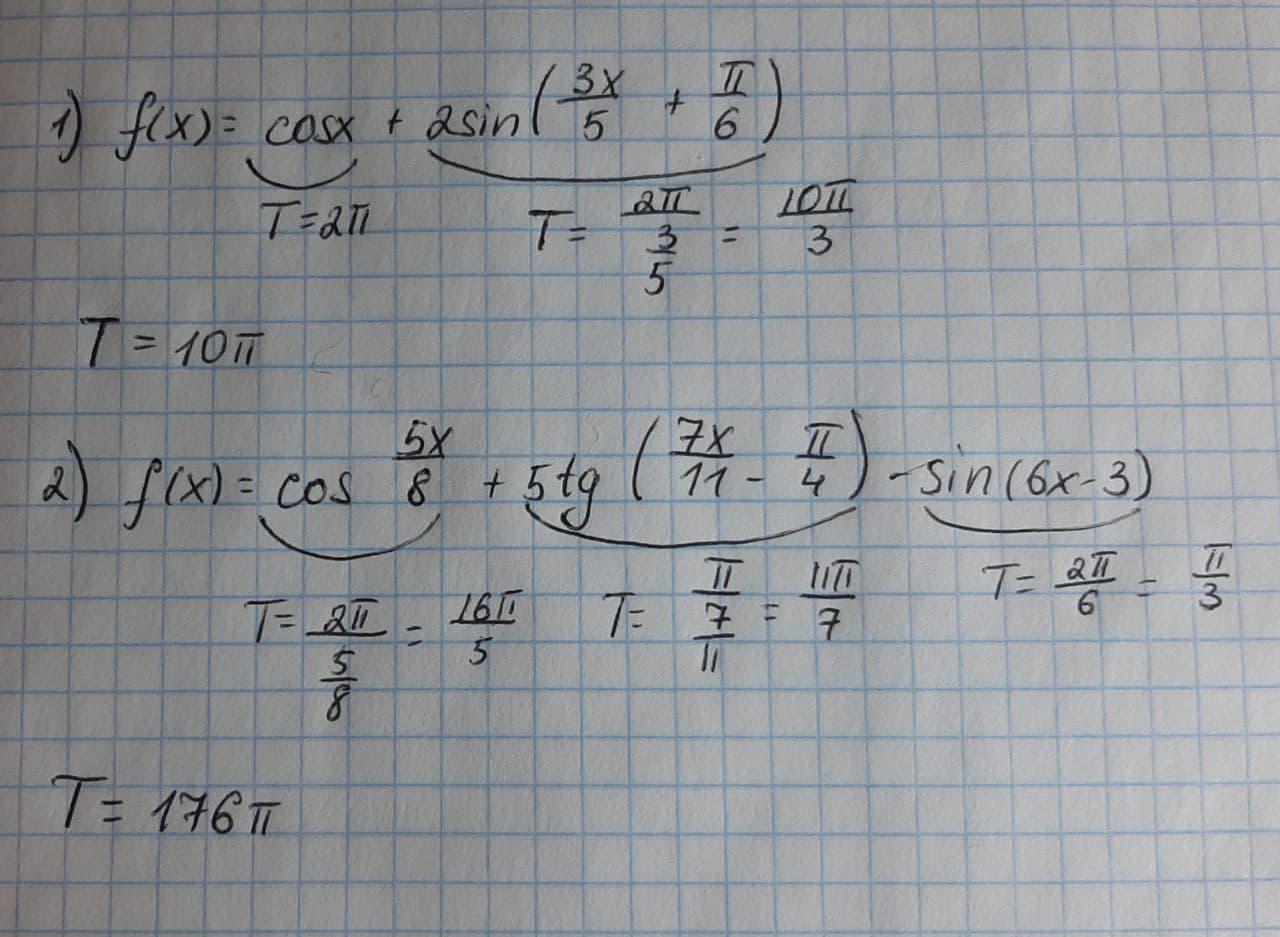 1) f(x) = cosx + 2sin(3x/5 + π/6)
T=2π T= 2π/(3/5) = 10π/3
T = 10π
2) f(x) = cos 5x/8 + 5tg (7x/11 - π/4) - sin(6x-3)
T= 2π/(5/8) = 16π/5 T= π/(7/11) = 11π/7 T= 2π/6 = π/3
T= 176π